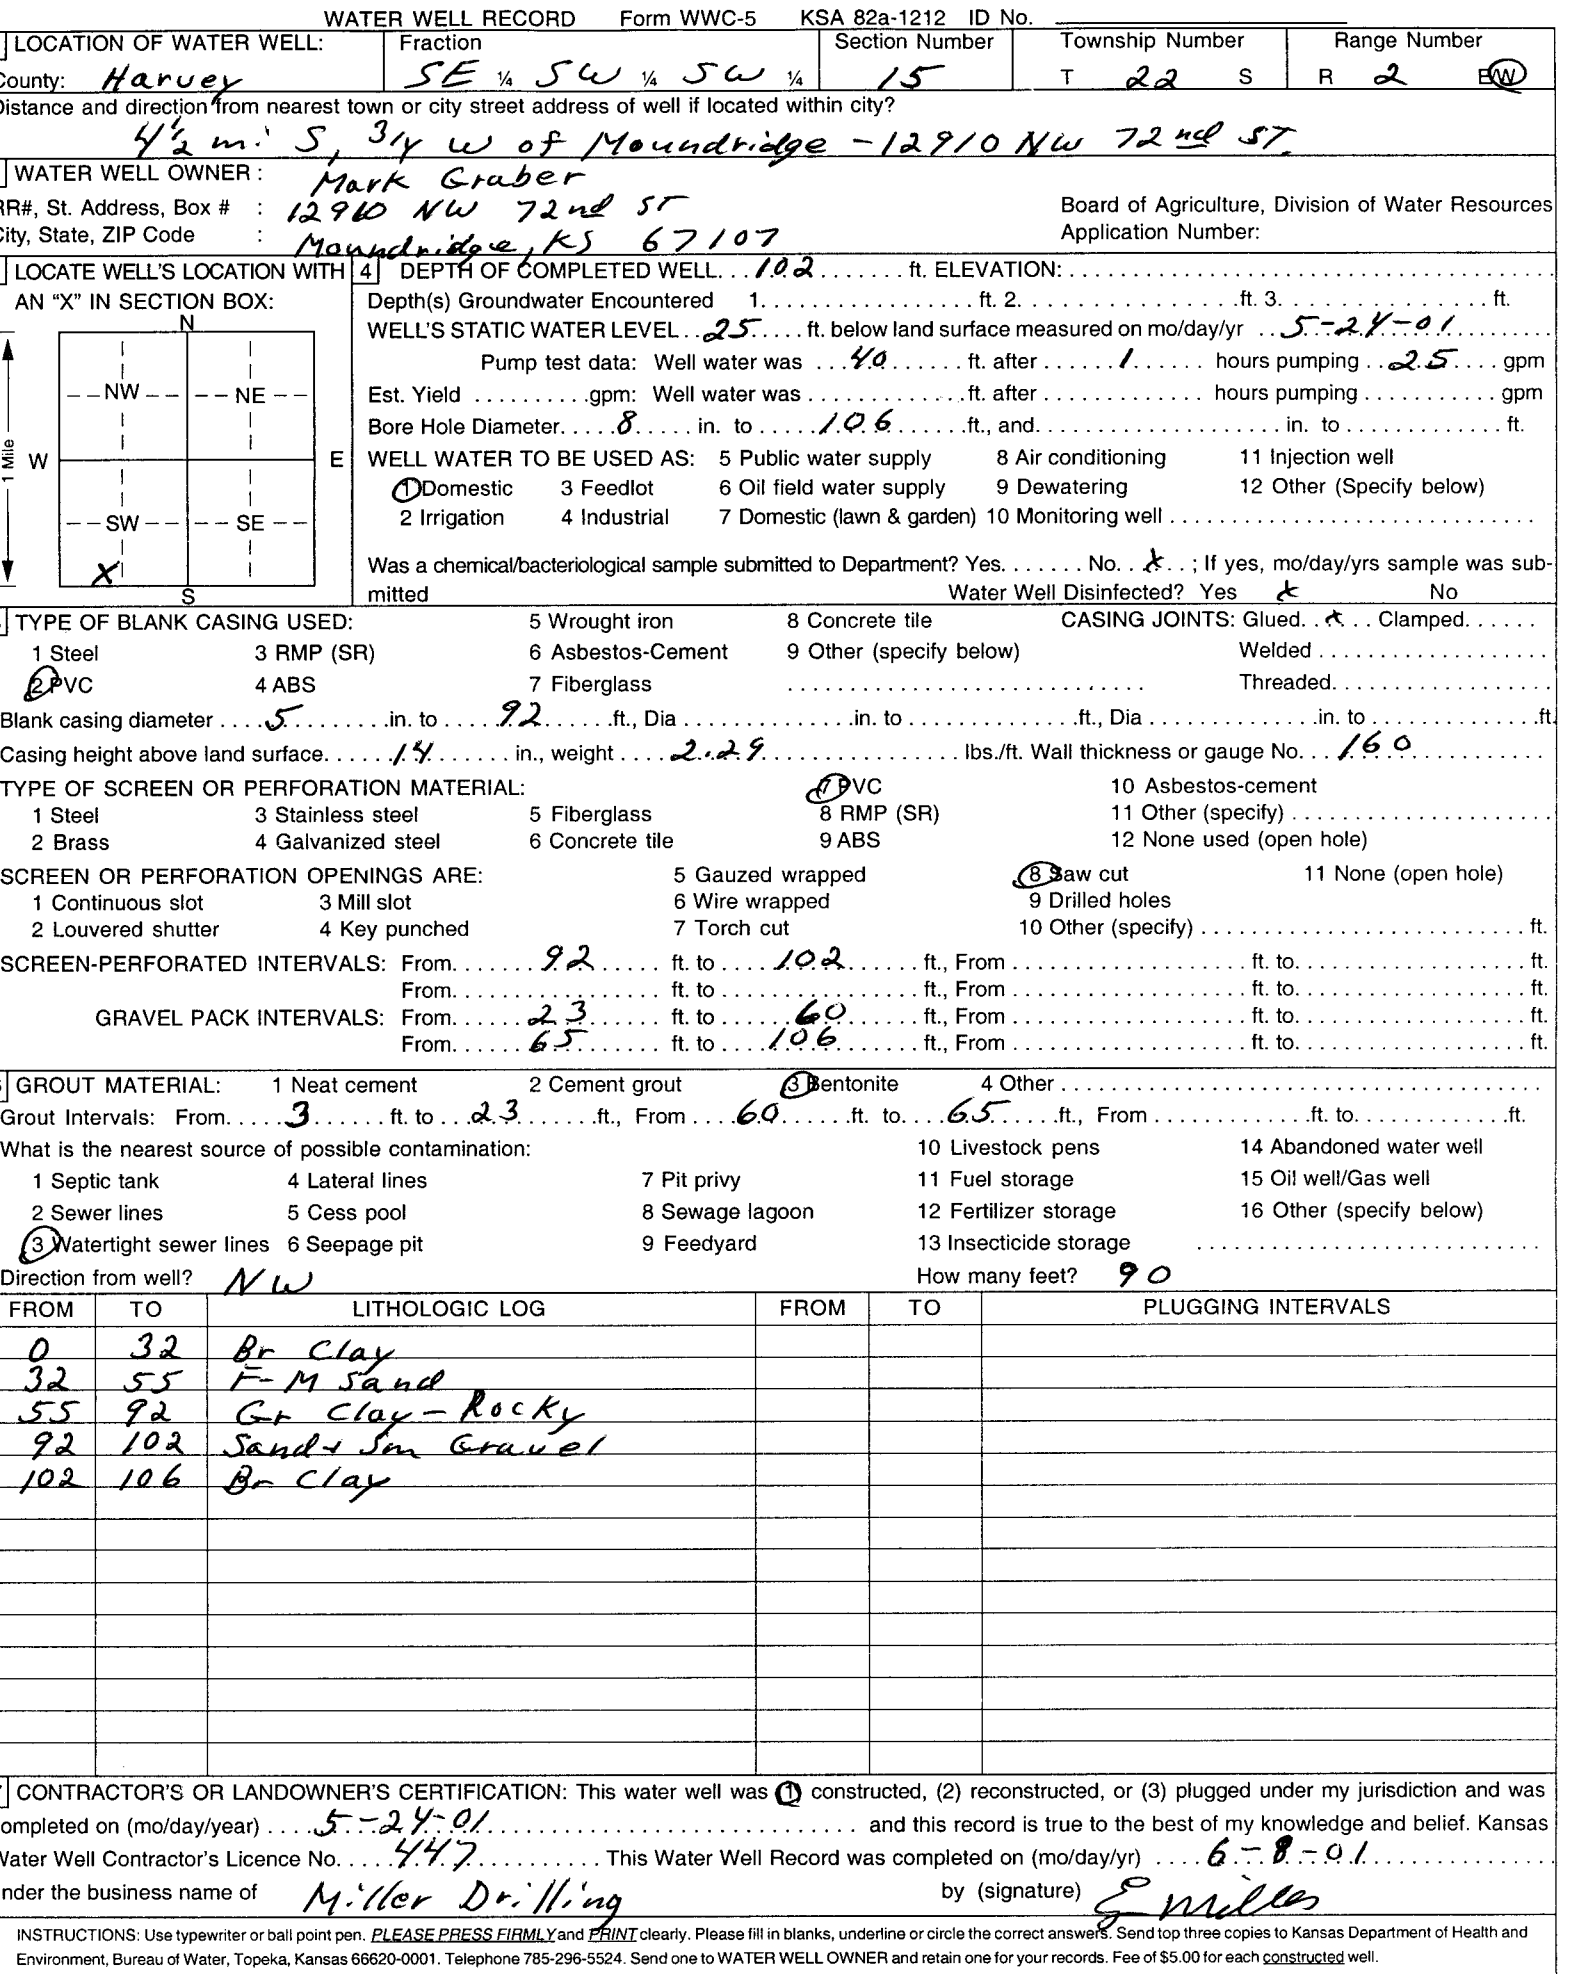 WATER WELL RECORD Form WWC-5 KSA 82a-1212 ID No.
LOCATION OF WATER WELL: Fraction Section Number Township Number Range Number
County: Harvey SE ¼ SW ¼ SW ¼ 15 T 22 S R 2 E/W
Distance and direction from nearest town or city street address of well if located within city?
4½ mi S, 3/4 W of Moundridge - 12910 NW 72nd ST.
WATER WELL OWNER: Mark Graber
RR#, St. Address, Box # : 12910 NW 72nd ST Board of Agriculture, Division of Water Resources
City, State, ZIP Code : Moundridge, KS 67107 Application Number:
LOCATE WELL'S LOCATION WITH 4 DEPTH OF COMPLETED WELL...102.......ft. ELEVATION:
AN "X" IN SECTION BOX: Depth(s) Groundwater Encountered 1. ft. 2. ft. 3. ft.
N WELL'S STATIC WATER LEVEL..25....ft. below land surface measured on mo/day/yr ..5-24-01
Pump test data: Well water was ...40.......ft. after......1...... hours pumping ..25.... gpm
NW NE Est. Yield ..........gpm: Well water was ..............ft. after.............. hours pumping ........... gpm
Bore Hole Diameter.....8.....in. to.....106.......ft., and.......in. to.......ft.
1 Mile W E WELL WATER TO BE USED AS: 5 Public water supply 8 Air conditioning 11 Injection well
1 Domestic 3 Feedlot 6 Oil field water supply 9 Dewatering 12 Other (Specify below)
SW SE 2 Irrigation 4 Industrial 7 Domestic (lawn & garden) 10 Monitoring well
X Was a chemical/bacteriological sample submitted to Department? Yes....... No..x..; If yes, mo/day/yrs sample was sub-
S mitted Water Well Disinfected? Yes x No
TYPE OF BLANK CASING USED: 5 Wrought iron 8 Concrete tile CASING JOINTS: Glued..x... Clamped......
1 Steel 3 RMP (SR) 6 Asbestos-Cement 9 Other (specify below) Welded
2 PVC 4 ABS 7 Fiberglass Threaded
Blank casing diameter ....5.......in. to.....92......ft., Dia .......in. to.......ft., Dia .......in. to.......ft.
Casing height above land surface......14.......in., weight ....2.29....... lbs./ft. Wall thickness or gauge No...160
TYPE OF SCREEN OR PERFORATION MATERIAL: 7 PVC 10 Asbestos-cement
1 Steel 3 Stainless steel 5 Fiberglass 8 RMP (SR) 11 Other (specify)
2 Brass 4 Galvanized steel 6 Concrete tile 9 ABS 12 None used (open hole)
SCREEN OR PERFORATION OPENINGS ARE: 5 Gauzed wrapped 8 Saw cut 11 None (open hole)
1 Continuous slot 3 Mill slot 6 Wire wrapped 9 Drilled holes
2 Louvered shutter 4 Key punched 7 Torch cut 10 Other (specify) ....... ft.
SCREEN-PERFORATED INTERVALS: From.......92...... ft. to....102......ft., From ....... ft. to....... ft.
From....... ft. to .......ft., From ....... ft. to....... ft.
GRAVEL PACK INTERVALS: From......23...... ft. to......60......ft., From ....... ft. to....... ft.
From......65...... ft. to....106......ft., From ....... ft. to....... ft.
GROUT MATERIAL: 1 Neat cement 2 Cement grout 3 Bentonite 4 Other
Grout Intervals: From.....3......ft. to...23.......ft., From ....60......ft. to....65.....ft., From .......ft. to.......ft.
What is the nearest source of possible contamination: 10 Livestock pens 14 Abandoned water well
1 Septic tank 4 Lateral lines 7 Pit privy 11 Fuel storage 15 Oil well/Gas well
2 Sewer lines 5 Cess pool 8 Sewage lagoon 12 Fertilizer storage 16 Other (specify below)
3 Watertight sewer lines 6 Seepage pit 9 Feedyard 13 Insecticide storage
Direction from well? NW How many feet? 90
FROM TO LITHOLOGIC LOG FROM TO PLUGGING INTERVALS
0 32 Br Clay
32 55 F-M Sand
55 92 Gr Clay - Rocky
92 102 Sand + Sm Gravel
102 106 Br Clay
CONTRACTOR'S OR LANDOWNER'S CERTIFICATION: This water well was (1) constructed, (2) reconstructed, or (3) plugged under my jurisdiction and was
completed on (mo/day/year) ....5-24-01....... and this record is true to the best of my knowledge and belief. Kansas
Water Well Contractor's Licence No.....447.......... This Water Well Record was completed on (mo/day/yr) ....6-8-01
under the business name of Miller Drilling by (signature) E Miller
INSTRUCTIONS: Use typewriter or ball point pen. PLEASE PRESS FIRMLY and PRINT clearly. Please fill in blanks, underline or circle the correct answers. Send top three copies to Kansas Department of Health and
Environment, Bureau of Water, Topeka, Kansas 66620-0001. Telephone 785-296-5524. Send one to WATER WELL OWNER and retain one for your records. Fee of $5.00 for each constructed well.